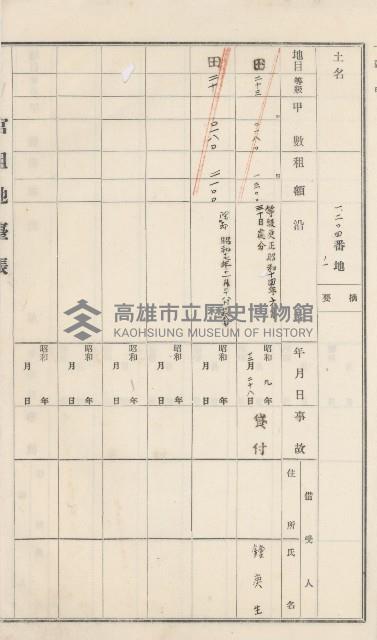 土名
一、二〇四番地ノ一
摘要
地目 等級 甲數 租額 沿
年月日 事故 借受人 住所 氏名
田 二十三 〇一八〇 一三〇〇
等級更正昭和十四年六
三十日處分
昭和 九年 十二月 二十八日 貸付 鍾庚生
田 二十 〇一八〇 二一〇〇
昭和 年 月 日
昭和 年 月 日
昭和 年 月 日
昭和 年 月 日
昭和 年 月 日
官租地臺帳
高雄市立歷史博物館
KAOHSIUNG MUSEUM OF HISTORY